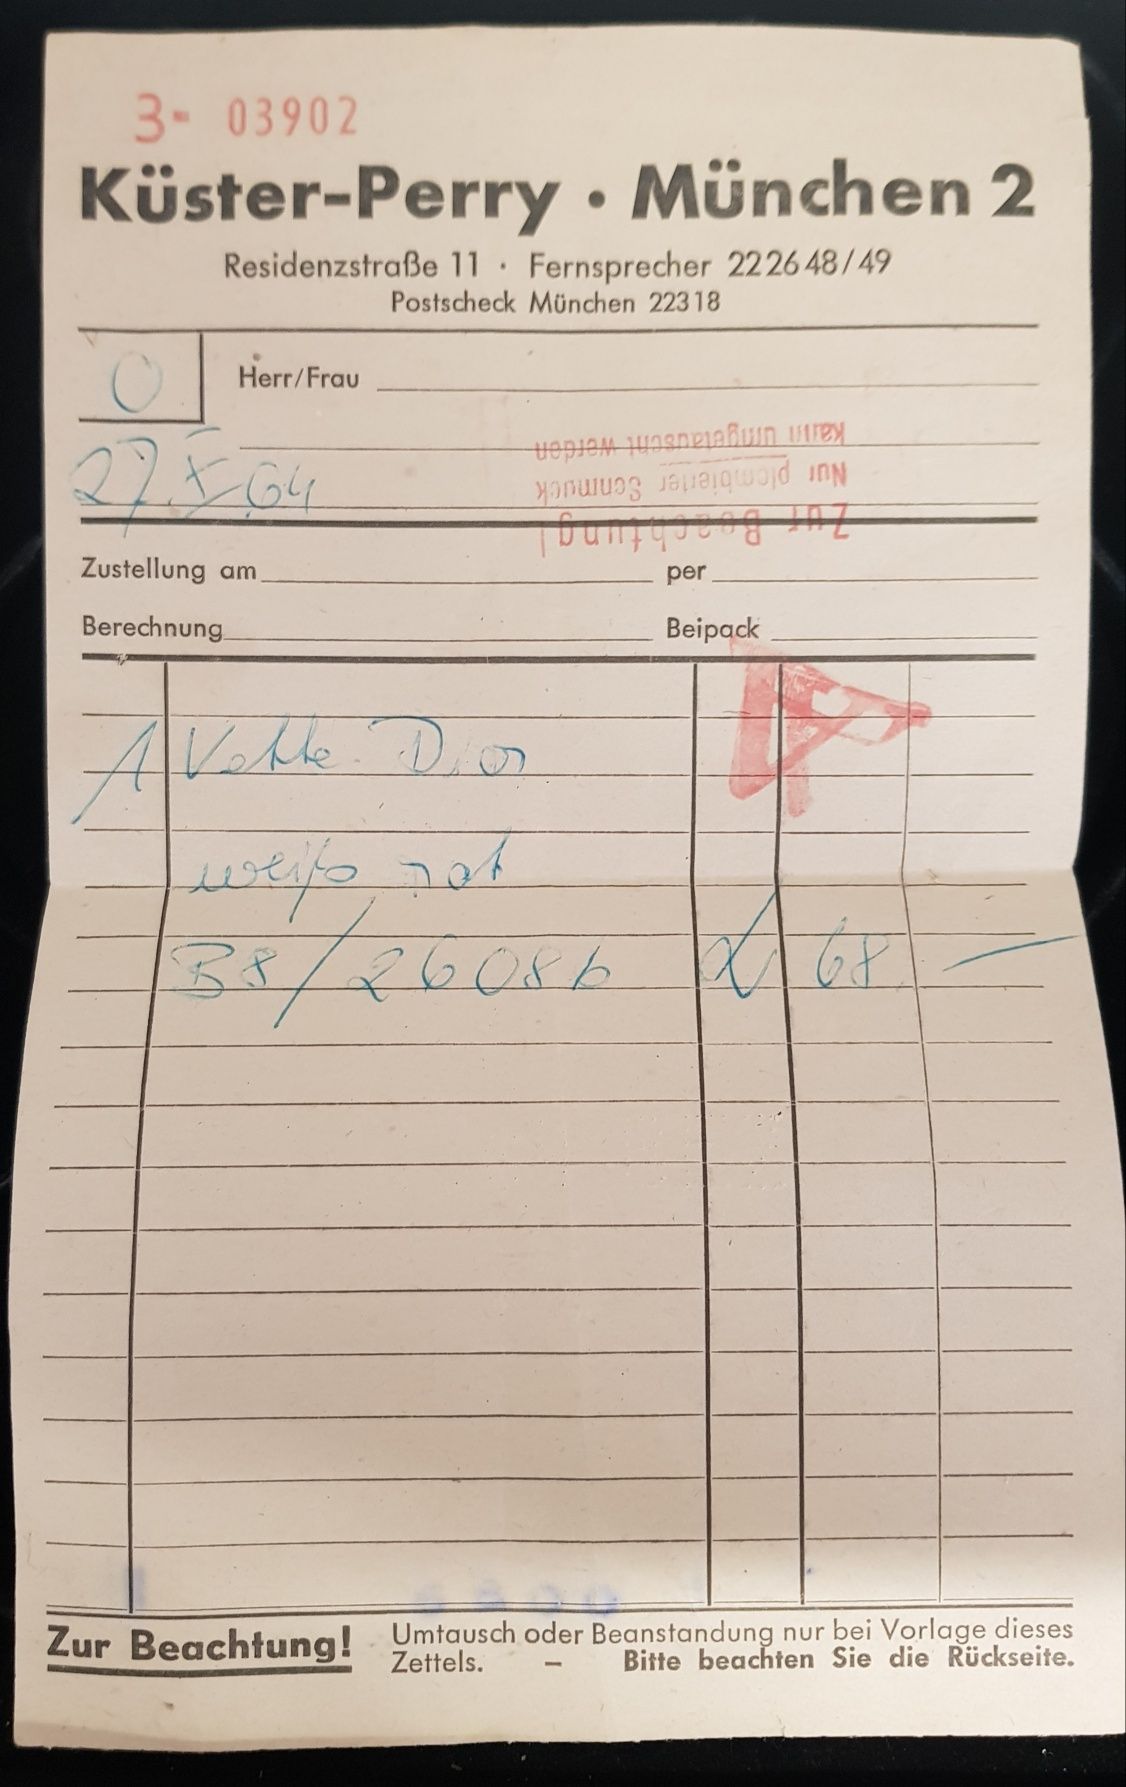 3- 03902
Küster-Perry · München 2
Residenzstraße 11 · Fernsprecher 222648/49
Postscheck München 22318
0
Herr/Frau
27. X. 64
Zur Beachtung!
Nur plombierter Schmuck
kann umgetauscht werden
Zustellung am per
Berechnung Beipack
1 Dior
weiß rot
B8/26086 68 —
Zur Beachtung! Umtausch oder Beanstandung nur bei Vorlage dieses
Zettels. – Bitte beachten Sie die Rückseite.